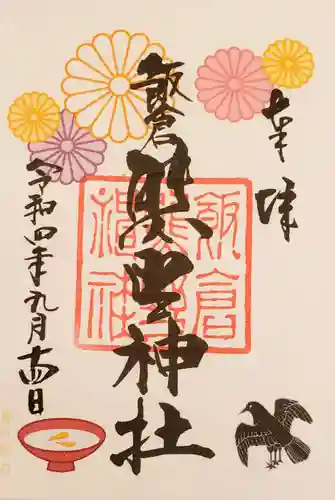 奉拝
飯倉熊野神社
飯倉
熊野
神社
令和四年九月十四日